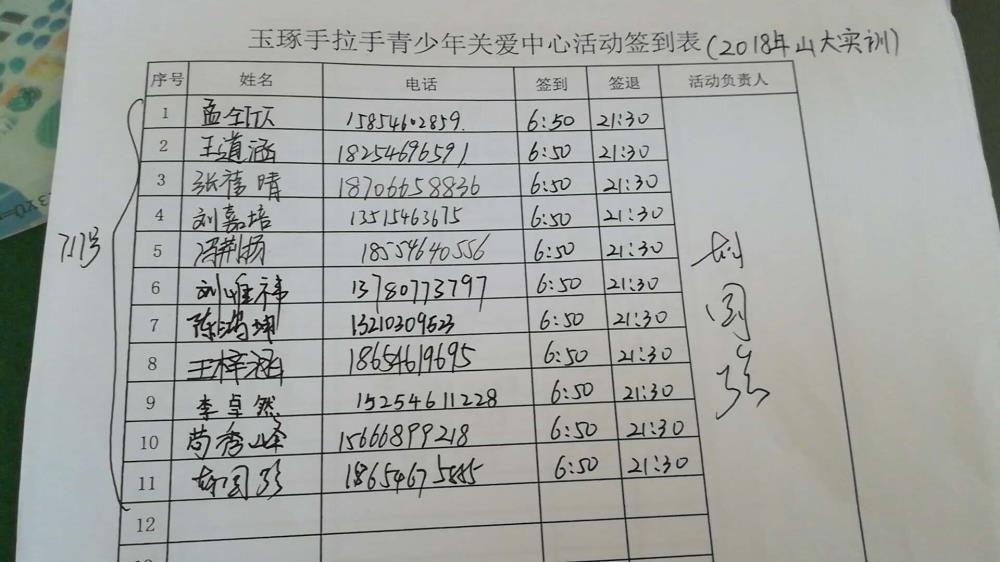 玉琢手拉手青少年关爱中心活动签到表(2018年山大实训)
序号 姓名 电话 签到 签退 活动负责人
1 孟 15854602859 6:50 21:30
2 王道涵 18254696591 6:50 21:30
3 张 晴 18706658836 6:50 21:30
4 刘嘉培 13515463675 6:50 21:30
5 冯荆扬 18554640556 6:50 21:30
6 刘 祎 13780773797 6:50 21:30
7 陈鸿翔 13210309623 6:50 21:30
8 王梓涵 18654619695 6:50 21:30
9 李卓然 15254611228 6:50 21:30
10 苟秀峰 15666899218 6:50 21:30
11 国 18654675885 6:50 21:30
12